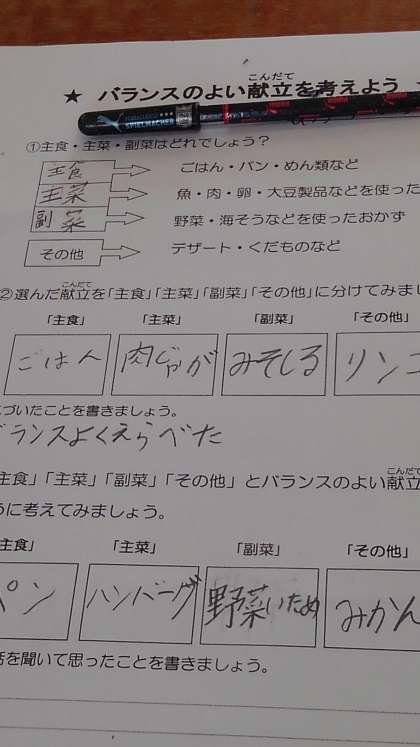 こんだて
★ バランスのよい献立を考えよう
SPIELMACHER
①主食・主菜・副菜はどれでしょう？
主食 ごはん・パン・めん類など
主菜 魚・肉・卵・大豆製品などを使った
副菜 野菜・海そうなどを使ったおかず
その他 デザート・くだものなど
こんだて
②選んだ献立を「主食」「主菜」「副菜」「その他」に分けてみまし
「主食」 「主菜」 「副菜」 「その他」
ごはん 肉じゃが みそしる リンゴ
づいたことを書きましょう。
バランスよくえらべた
こんだて
主食」「主菜」「副菜」「その他」とバランスのよい献立
うに考えてみましょう。
主食」 「主菜」 「副菜」 「その他」
パン ハンバーグ 野菜いため みかん
話を聞いて思ったことを書きましょう。